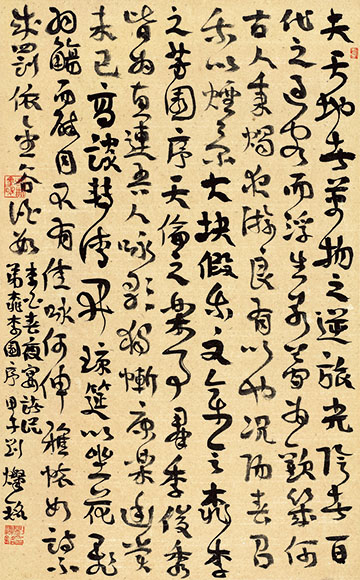 夫天地者萬物之逆旅光陰者百
代之過客而浮生若夢為歡幾何
古人秉燭夜遊良有以也況陽春召
我以煙景大塊假我文章會桃李
之芳園序天倫之樂事群季俊秀
皆為惠連吾人詠歌獨慚康樂幽賞
未已高談轉清開瓊筵以坐花飛
羽觴而醉月不有佳詠何伸雅懷如詩不
成罰依金谷酒數
李白春夜宴諸從
弟桃李園序甲子劉燦銘